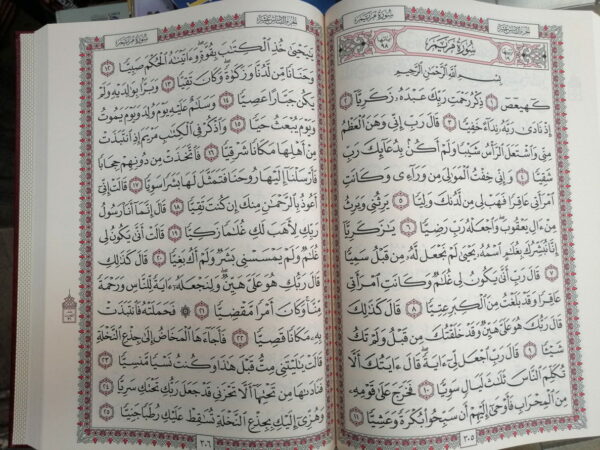 سُورَةُ مَرْيَمَ
الجُزْءُ السَّادِسَ عَشَرَ
سُورَةُ مَرْيَمَ
٩٨
١٩
بِسْمِ ٱللَّهِ ٱلرَّحْمَٰنِ ٱلرَّحِيمِ
كٓهيعٓصٓ ١ ذِكْرُ رَحْمَتِ رَبِّكَ عَبْدَهُۥ زَكَرِيَّآ ٢
إِذْ نَادَىٰ رَبَّهُۥ نِدَآءً خَفِيًّا ٣ قَالَ رَبِّ إِنِّي وَهَنَ ٱلْعَظْمُ
مِنِّي وَٱشْتَعَلَ ٱلرَّأْسُ شَيْبًا وَلَمْ أَكُنۢ بِدُعَآئِكَ رَبِّ
شَقِيًّا ٤ وَإِنِّي خِفْتُ ٱلْمَوَٰلِيَ مِن وَرَآءِي وَكَانَتِ
ٱمْرَأَتِي عَاقِرًا فَهَبْ لِي مِن لَّدُنكَ وَلِيًّا ٥ يَرِثُنِي وَيَرِثُ
مِنْ ءَالِ يَعْقُوبَ وَٱجْعَلْهُ رَبِّ رَضِيًّا ٦ يَٰزَكَرِيَّآ
إِنَّا نُبَشِّرُكَ بِغُلَٰمٍ ٱسْمُهُۥ يَحْيَىٰ لَمْ نَجْعَل لَّهُۥ مِن قَبْلُ سَمِيًّا
٧ قَالَ رَبِّ أَنَّىٰ يَكُونُ لِي غُلَٰمٌ وَكَانَتِ ٱمْرَأَتِي
عَاقِرًا وَقَدْ بَلَغْتُ مِنَ ٱلْكِبَرِ عِتِيًّا ٨ قَالَ كَذَٰلِكَ
قَالَ رَبُّكَ هُوَ عَلَيَّ هَيِّنٌ وَقَدْ خَلَقْتُكَ مِن قَبْلُ وَلَمْ تَكُ
شَيْـًٔا ٩ قَالَ رَبِّ ٱجْعَل لِّيٓ ءَايَةً قَالَ ءَايَتُكَ أَلَّا
تُكَلِّمَ ٱلنَّاسَ ثَلَٰثَ لَيَالٍ سَوِيًّا ١٠ فَخَرَجَ عَلَىٰ قَوْمِهِۦ
مِنَ ٱلْمِحْرَابِ فَأَوْحَىٰٓ إِلَيْهِمْ أَن سَبِّحُوا۟ بُكْرَةً وَعَشِيًّا ١١
٣٠٥
الجُزْءُ السَّادِسَ عَشَرَ
سُورَةُ مَرْيَمَ
يَٰيَحْيَىٰ خُذِ ٱلْكِتَٰبَ بِقُوَّةٍ وَءَاتَيْنَٰهُ ٱلْحُكْمَ صَبِيًّا ١٢
وَحَنَانًا مِّن لَّدُنَّا وَزَكَوٰةً وَكَانَ تَقِيًّا ١٣ وَبَرًّۢا بِوَٰلِدَيْهِ وَلَمْ
يَكُن جَبَّارًا عَصِيًّا ١٤ وَسَلَٰمٌ عَلَيْهِ يَوْمَ وُلِدَ وَيَوْمَ يَمُوتُ
وَيَوْمَ يُبْعَثُ حَيًّا ١٥ وَٱذْكُرْ فِي ٱلْكِتَٰبِ مَرْيَمَ إِذِ ٱنتَبَذَتْ
مِنْ أَهْلِهَا مَكَانًا شَرْقِيًّا ١٦ فَٱتَّخَذَتْ مِن دُونِهِمْ حِجَابًا
فَأَرْسَلْنَآ إِلَيْهَا رُوحَنَا فَتَمَثَّلَ لَهَا بَشَرًا سَوِيًّا ١٧ قَالَتْ إِنِّيٓ
أَعُوذُ بِٱلرَّحْمَٰنِ مِنكَ إِن كُنتَ تَقِيًّا ١٨ قَالَ إِنَّمَآ أَنَا۠ رَسُولُ
رَبِّكِ لِأَهَبَ لَكِ غُلَٰمًا زَكِيًّا ١٩ قَالَتْ أَنَّىٰ يَكُونُ لِي
غُلَٰمٌ وَلَمْ يَمْسَسْنِي بَشَرٌ وَلَمْ أَكُ بَغِيًّا ٢٠ قَالَ كَذَٰلِكِ
قَالَ رَبُّكِ هُوَ عَلَيَّ هَيِّنٌ وَلِنَجْعَلَهُۥٓ ءَايَةً لِّلنَّاسِ وَرَحْمَةً
مِّنَّا وَكَانَ أَمْرًا مَّقْضِيًّا ٢١ ۞ فَحَمَلَتْهُ فَٱنتَبَذَتْ
بِهِۦ مَكَانًا قَصِيًّا ٢٢ فَأَجَآءَهَا ٱلْمَخَاضُ إِلَىٰ جِذْعِ ٱلنَّخْلَةِ
قَالَتْ يَٰلَيْتَنِي مِتُّ قَبْلَ هَٰذَا وَكُنتُ نَسْيًا مَّنسِيًّا ٢٣
فَنَادَىٰهَا مِن تَحْتِهَآ أَلَّا تَحْزَنِي قَدْ جَعَلَ رَبُّكِ تَحْتَكِ سَرِيًّا ٢٤
وَهُزِّيٓ إِلَيْكِ بِجِذْعِ ٱلنَّخْلَةِ تُسَٰقِطْ عَلَيْكِ رُطَبًا جَنِيًّا ٢٥
٣٠٦